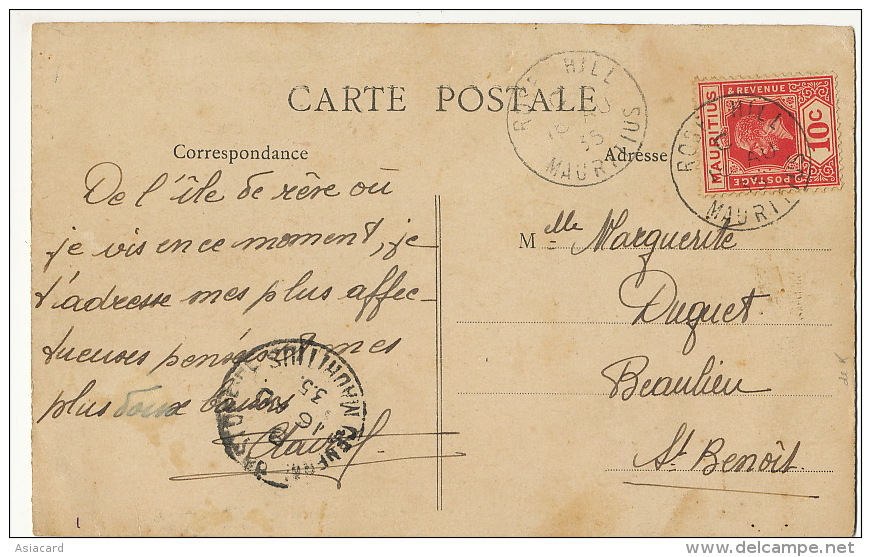 CARTE POSTALE
Correspondance
Adresse
ROSE HILL
16 AU
35
MAURITIUS
MAURITIUS
& REVENUE
POSTAGE
10c
ROSE HILL
AU
MAURITIUS
De l'île de rêve où
je vis en ce moment, je
t'adresse mes plus affec-
tueuses pensées et mes
plus doux baisers
MAURITIUS
GENERAL
16 AU
35
Melle Marguerite
Duguet
Beaulieu
St Benoît.
Asiacard
www.delcampe.net